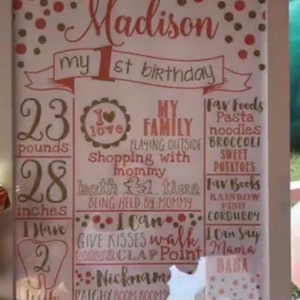 Madison
my 1st birthday
23
pounds
28
inches
I Have
2
I love
MY
FAMILY
PLAYING OUTSIDE
shopping with
mommy
bath time
BEING HELD BY MOMMY
I Can
GIVE KISSES walk
CLAP Point
Nickname
BOOM BOOM
Fav Foods
Pasta
noodles
BROCCOLI
SWEET
POTATOES
Fav Books
RAINBOW
FISH
CORDUROY
I Can Say
Mama
BABA